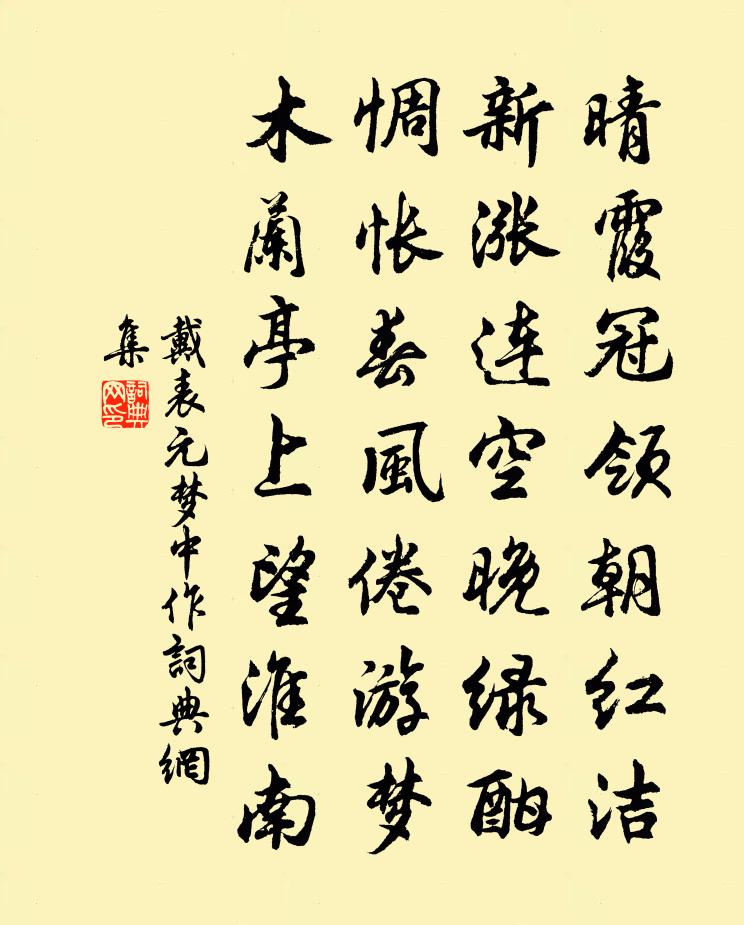 晴霞冠领朝红洁
新涨连空晚绿酣
惆怅春風倦游梦
木蘭亭上望淮南
戴表元梦中作詞典網
集
詞典
网印